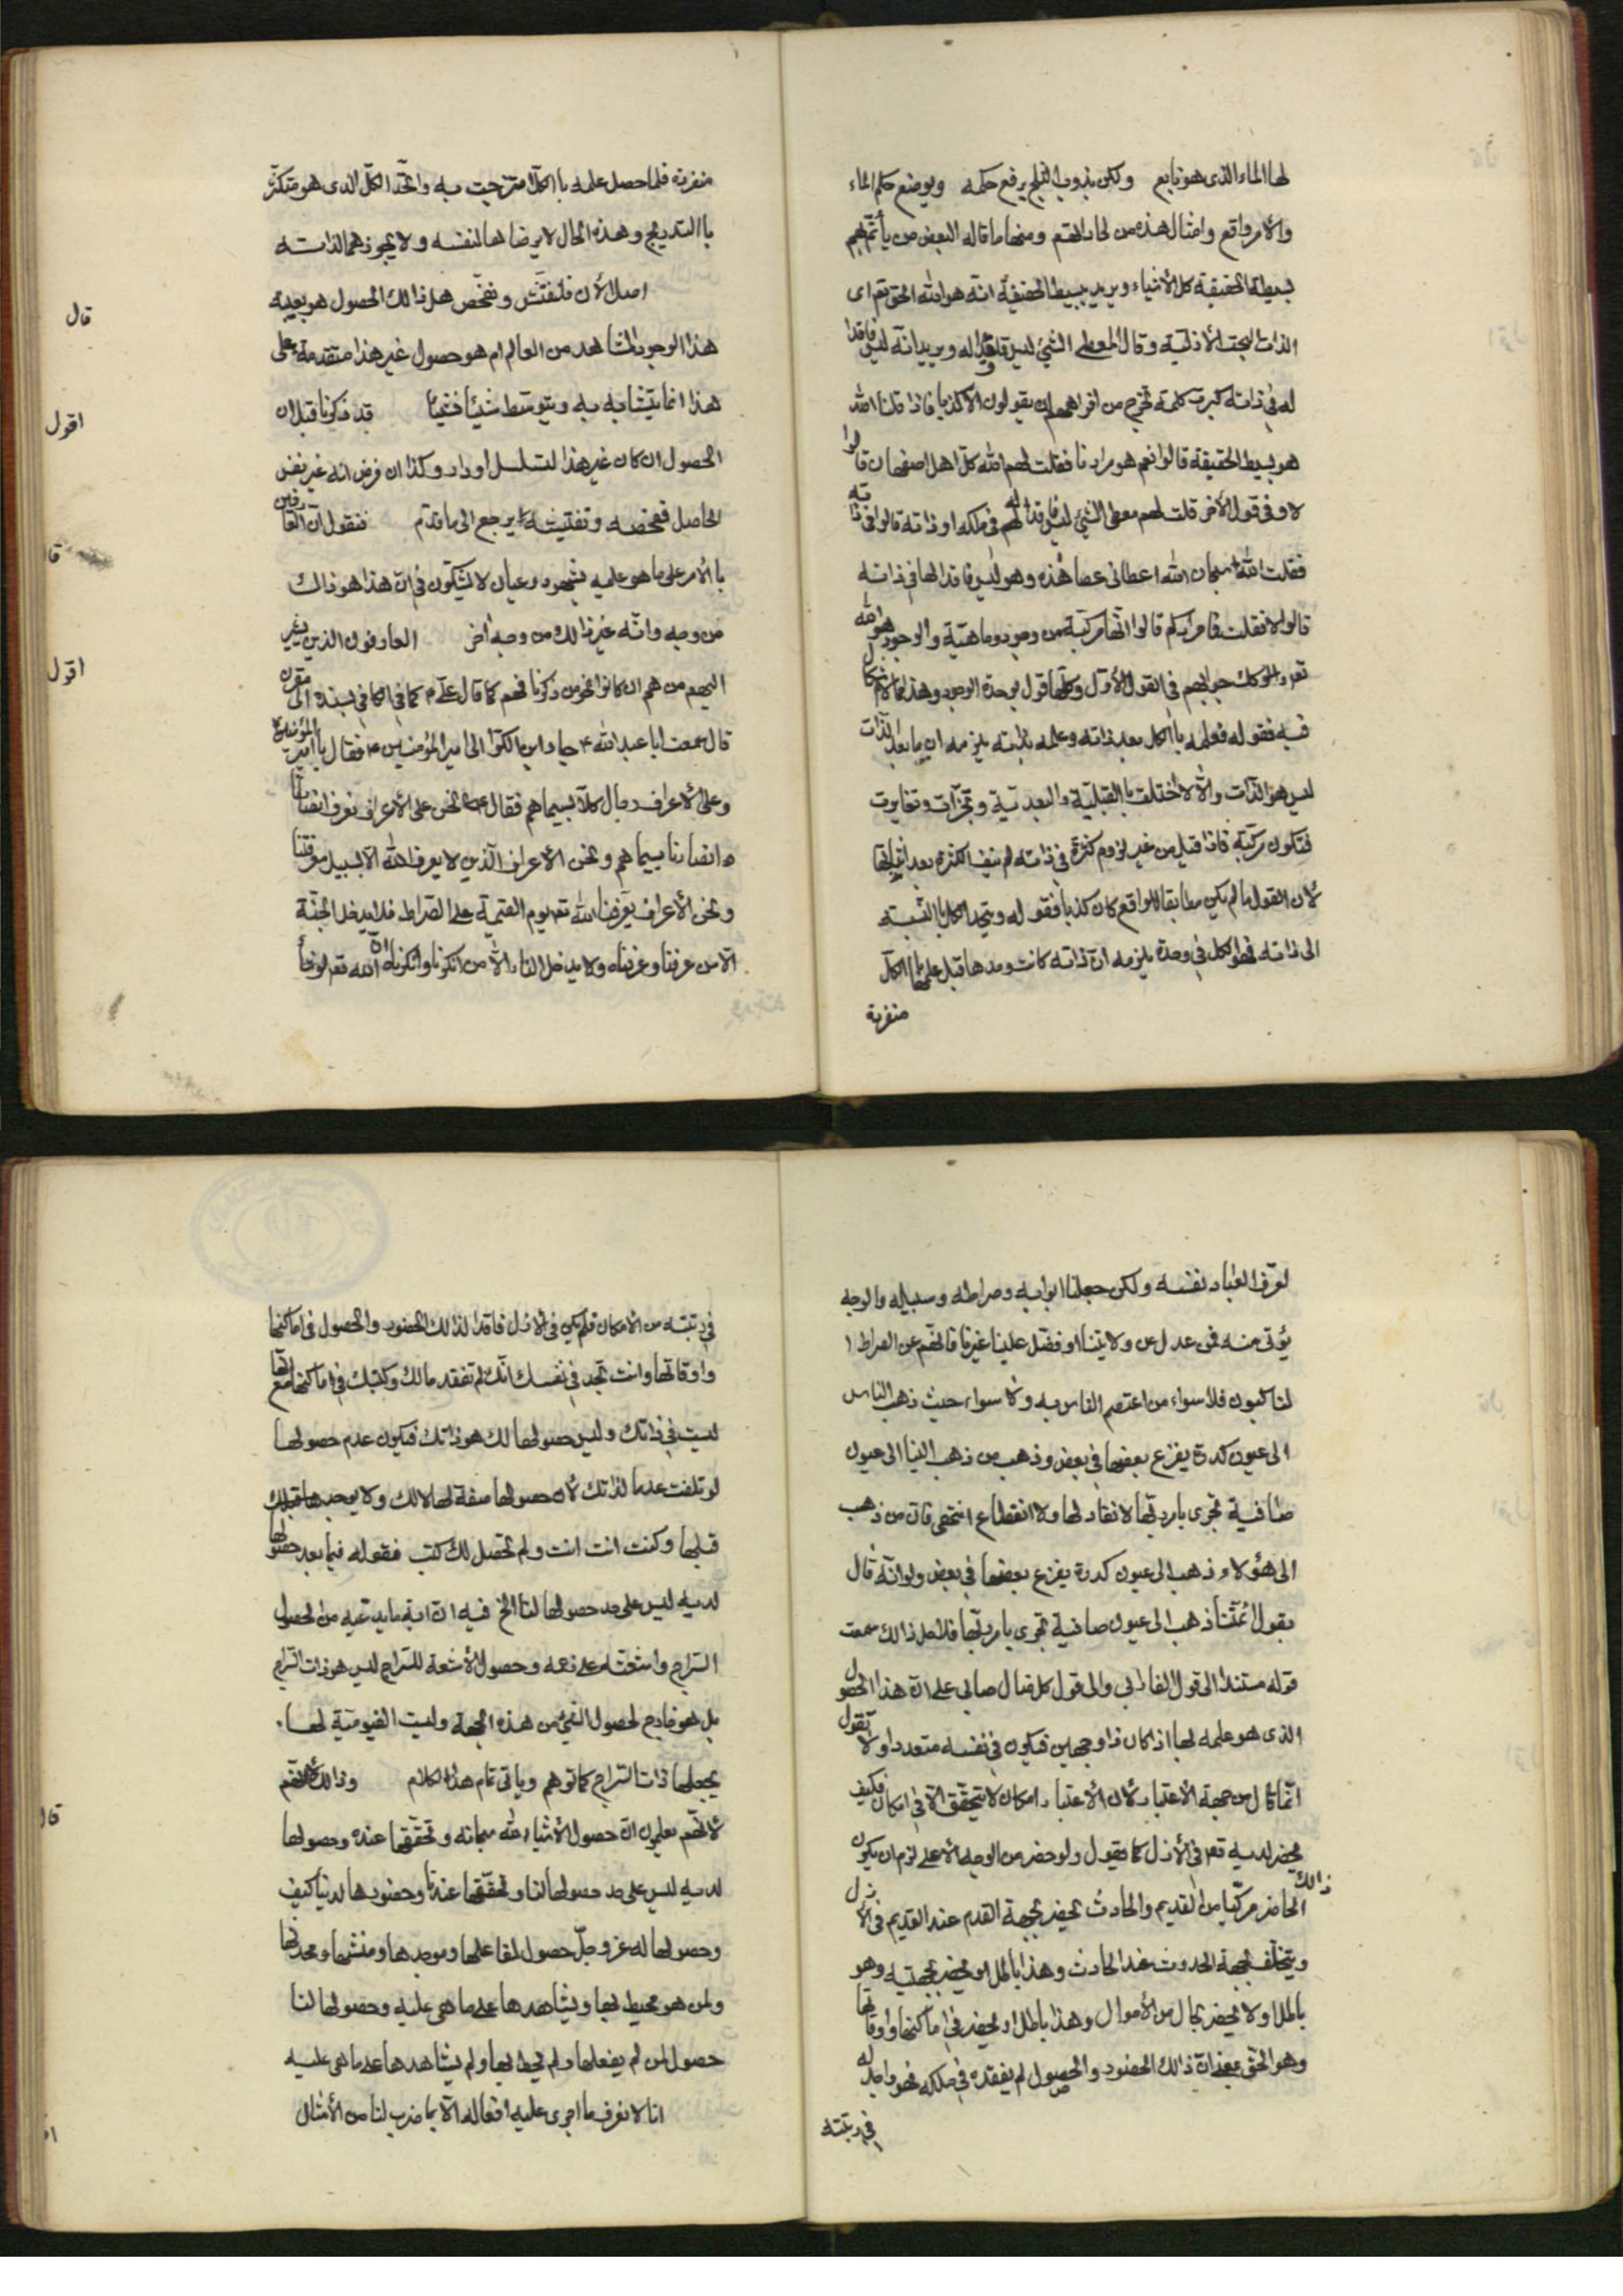 لها الماء الذى هو نابع ولكن بذوب الثلج يرفع حكمه ويوضع حكم الماء
والأمر واقع وامثال هذه من لحاداتهم ومنها ما قاله البعض من يأتم بهم
بسيط الحقيقة كل الأشياء ويريد ببسيط الحقيقة انه هو الله الحق تعم اى
الذات البحت الأزلية وقال المعطى الشئ ليس فاقدا له ويريد انه ليس فاقدا
له فى ذاته كبرت كلمة تخرج من افواههم ان يقولون الا كذبا فاذا قلنا الله
هو بسيط الحقيقة قالوا نعم هو مرادنا فقلت لهم الله كل اهل اصفهان قالوا
لا وفى قول الأخر قلت لهم معطى الشئ ليس فاقدا له فى ملكه او ذاته قالوا فى ذاته
فقلت الله سبحان الله اعطانى عصا هذه وهو ليس فاقدا لها فى ذاته
قالوا لا فقلت فما مرادكم قالوا انها مركبة من وجود وماهية والوجود هو الله
جوابهم فى القول الأول وكلها قول بوحدة الوجود وهذا مما لا اشكال
فيه فقوله فعلمه باالكل بعد ذاته وعلمه بذاته يلزمه ان ما بعد الذات
ليس هو الذات والا لاختلف باالقبلية والبعدية وتجزأت وتغايرت
فتكون مركبة فاذا قيل من غير لزوم كثرة فى ذاته لم ينف الكثرة بعد اثباتها
لأن القول ما لم يكن مطابقا للواقع كان كذبا فقوله ويتحد الكل باالنسبة
الى ذاته فهو الكل فى وحدة يلزمه ان ذاته كانت وحدها قبل علمها باالكل
منفردة
منفردة فلما حصل علمه باالكل امتزجت به واتحد الكل الذى هو متكثر
باالتدريج وهذه الحال لا يرضاها لنفسه ولا يجوزهما لذاته
قال
اصل الأن فلنفتش ونفحص هل ذالك الحصول هو بعينه
هذا الوجود المشاهد من العالم ام هو حصول غير هذا متقدمة على
اقول
هذا انما يتشابه به ويتوسط شيئا فشيئا قد ذكرنا قبل ان
الحصول ان كان غير هذا لتسلسل او دار وكذا ان فرض انه غير نفس
قا
الحاصل ففحصه وتفتيشه يرجع الى ما قدم فنقول ان العارفين
باالأمر على ما هو عليه بشهود وعيان لا يشكون فى ان هذا هو ذالك
اقول
من وجه وانه غير ذالك من وجه اخر العارفون الذين يشير
اليهم من هم ان كانوا نحو من ذكرنا فهم كما قال علم كما فى الكافى بسنده الى مقرن
قال سمعت ابا عبد الله ء جاء ابن الكوا الى امير المؤمنين ء فقال يا امير المؤمنين
وعلى الأعراف رجال كلا بسيماهم فقال نحن على الأعراف نعرف انصارنا
انصارنا بسيماهم ونحن الأعراف الذين لا يعرف الله الا بسبيل معرفتنا
ونحن الأعراف يعرفنا الله تعم يوم القيمة على الصراط فلا يدخل الجنة
الا من عرفنا وعرفناه ولا يدخل النار الا من انكرنا وانكرناه ان الله تعم لو شأ
لعرف العباد نفسه ولكن جعلنا ابوابه وصراطه وسبيله والوجه
يؤتى منه فمن عدل عن ولايتنا او فضل علينا غيرنا فانهم عن الصراط
لناكبون فلا سواء من اعتصم الناس به ولا سواء حيث ذهب الناس
الى عيون كدرة يفرغ بعضها فى بعض وذهب من ذهب الينا الى عيون
صافية تجرى بامر ربها لا نفاد لها ولا انقطاع انتهى فان من ذهب
الى هؤلاء ذهب الى عيون كدرة يفرغ بعضها فى بعض ولو انه قال
بقول ائمتنا ذهب الى عيون صافية تجرى بامر ربها فلاجل ذالك سمعت
قوله مستندا الى قول الفارابى والى قول كل ضال صابى على ان هذا الحصول
الذى هو علمه لها اذا كان ذا وجهين فيكون فى نفسه متعددا ولا تقول
انما قال من جهة الأعتبار لأن الأعتبار امكان لا يتحقق الا فى امكان فكيف
يحضر لديه تعم فى الأزل كما يقول ولو حضر من الوجه الأعلى لزم ان يكون
ذالك الحاضر مركبا من القديم والحادث يحضر بجهة القدم عند القديم فى الأزل
ويتخلف بجهة الحدوث عند الحادث وهذا باطل او يحضر بجهتيه وهو
باطل او لا يحضر بحال من الأحوال وهذا باطل او يحضر فى اماكنها واوقاتها
وهو الحق بمعنى ان ذالك الحضور والحصول لم يفقده فى ملكه فهو واجد له
فى رتبته
فى رتبته من الأمكان فلم يكن فى الأزل فاقدا لذالك الحضور والحصول فى اماكنها
واوقاتها وانت تجد فى نفسك انك لم تفقد مالك وكتبك فى اماكنها مع انها
ليست فى ذاتك وليس حصولها لك هو ذاتك فيكون عدم حصولها
لو تلفت عدما لذاتك لأن حصولها صفة لها لا لك ولا يوجد
قبلها وكنت انت انت ولم تحصل لك كتب فقوله فيما بعد حصولها
لديه ليس على حد حصولها لنا الخ فيه ان اية ما يدعيه من الحصول
السراج واشعته على زعمه وحصول الأشعة للسراج ليس هو ذات السراج
بل هو خارج لحصول الشئ من هذه الجهة وليست القيومية لها
يجعلها ذات السراج كما توهم وياتى تمام هذا الكلام وذالك لأنهم
قال
لأنهم يعلمون ان حصول الأشياء لله سبحانه وتحققها عنده وحصولها
لديه ليس على حد حصولها لنا وتحققها عندنا وحضورها لدينا كيف
وحصولها له عز وجل حصول لفاعلها وموجدها ومنشئها ومحدثها
ولمن هو محيط بها ويشاهدها على ما هى عليه وحصولها لنا
حصول لمن لم يفعلها ولم يحط بها ولم يشاهدها على ما هى عليه
انا لا نعرف ما اجرى عليه افعاله الا بما ضرب لنا من الأمثال